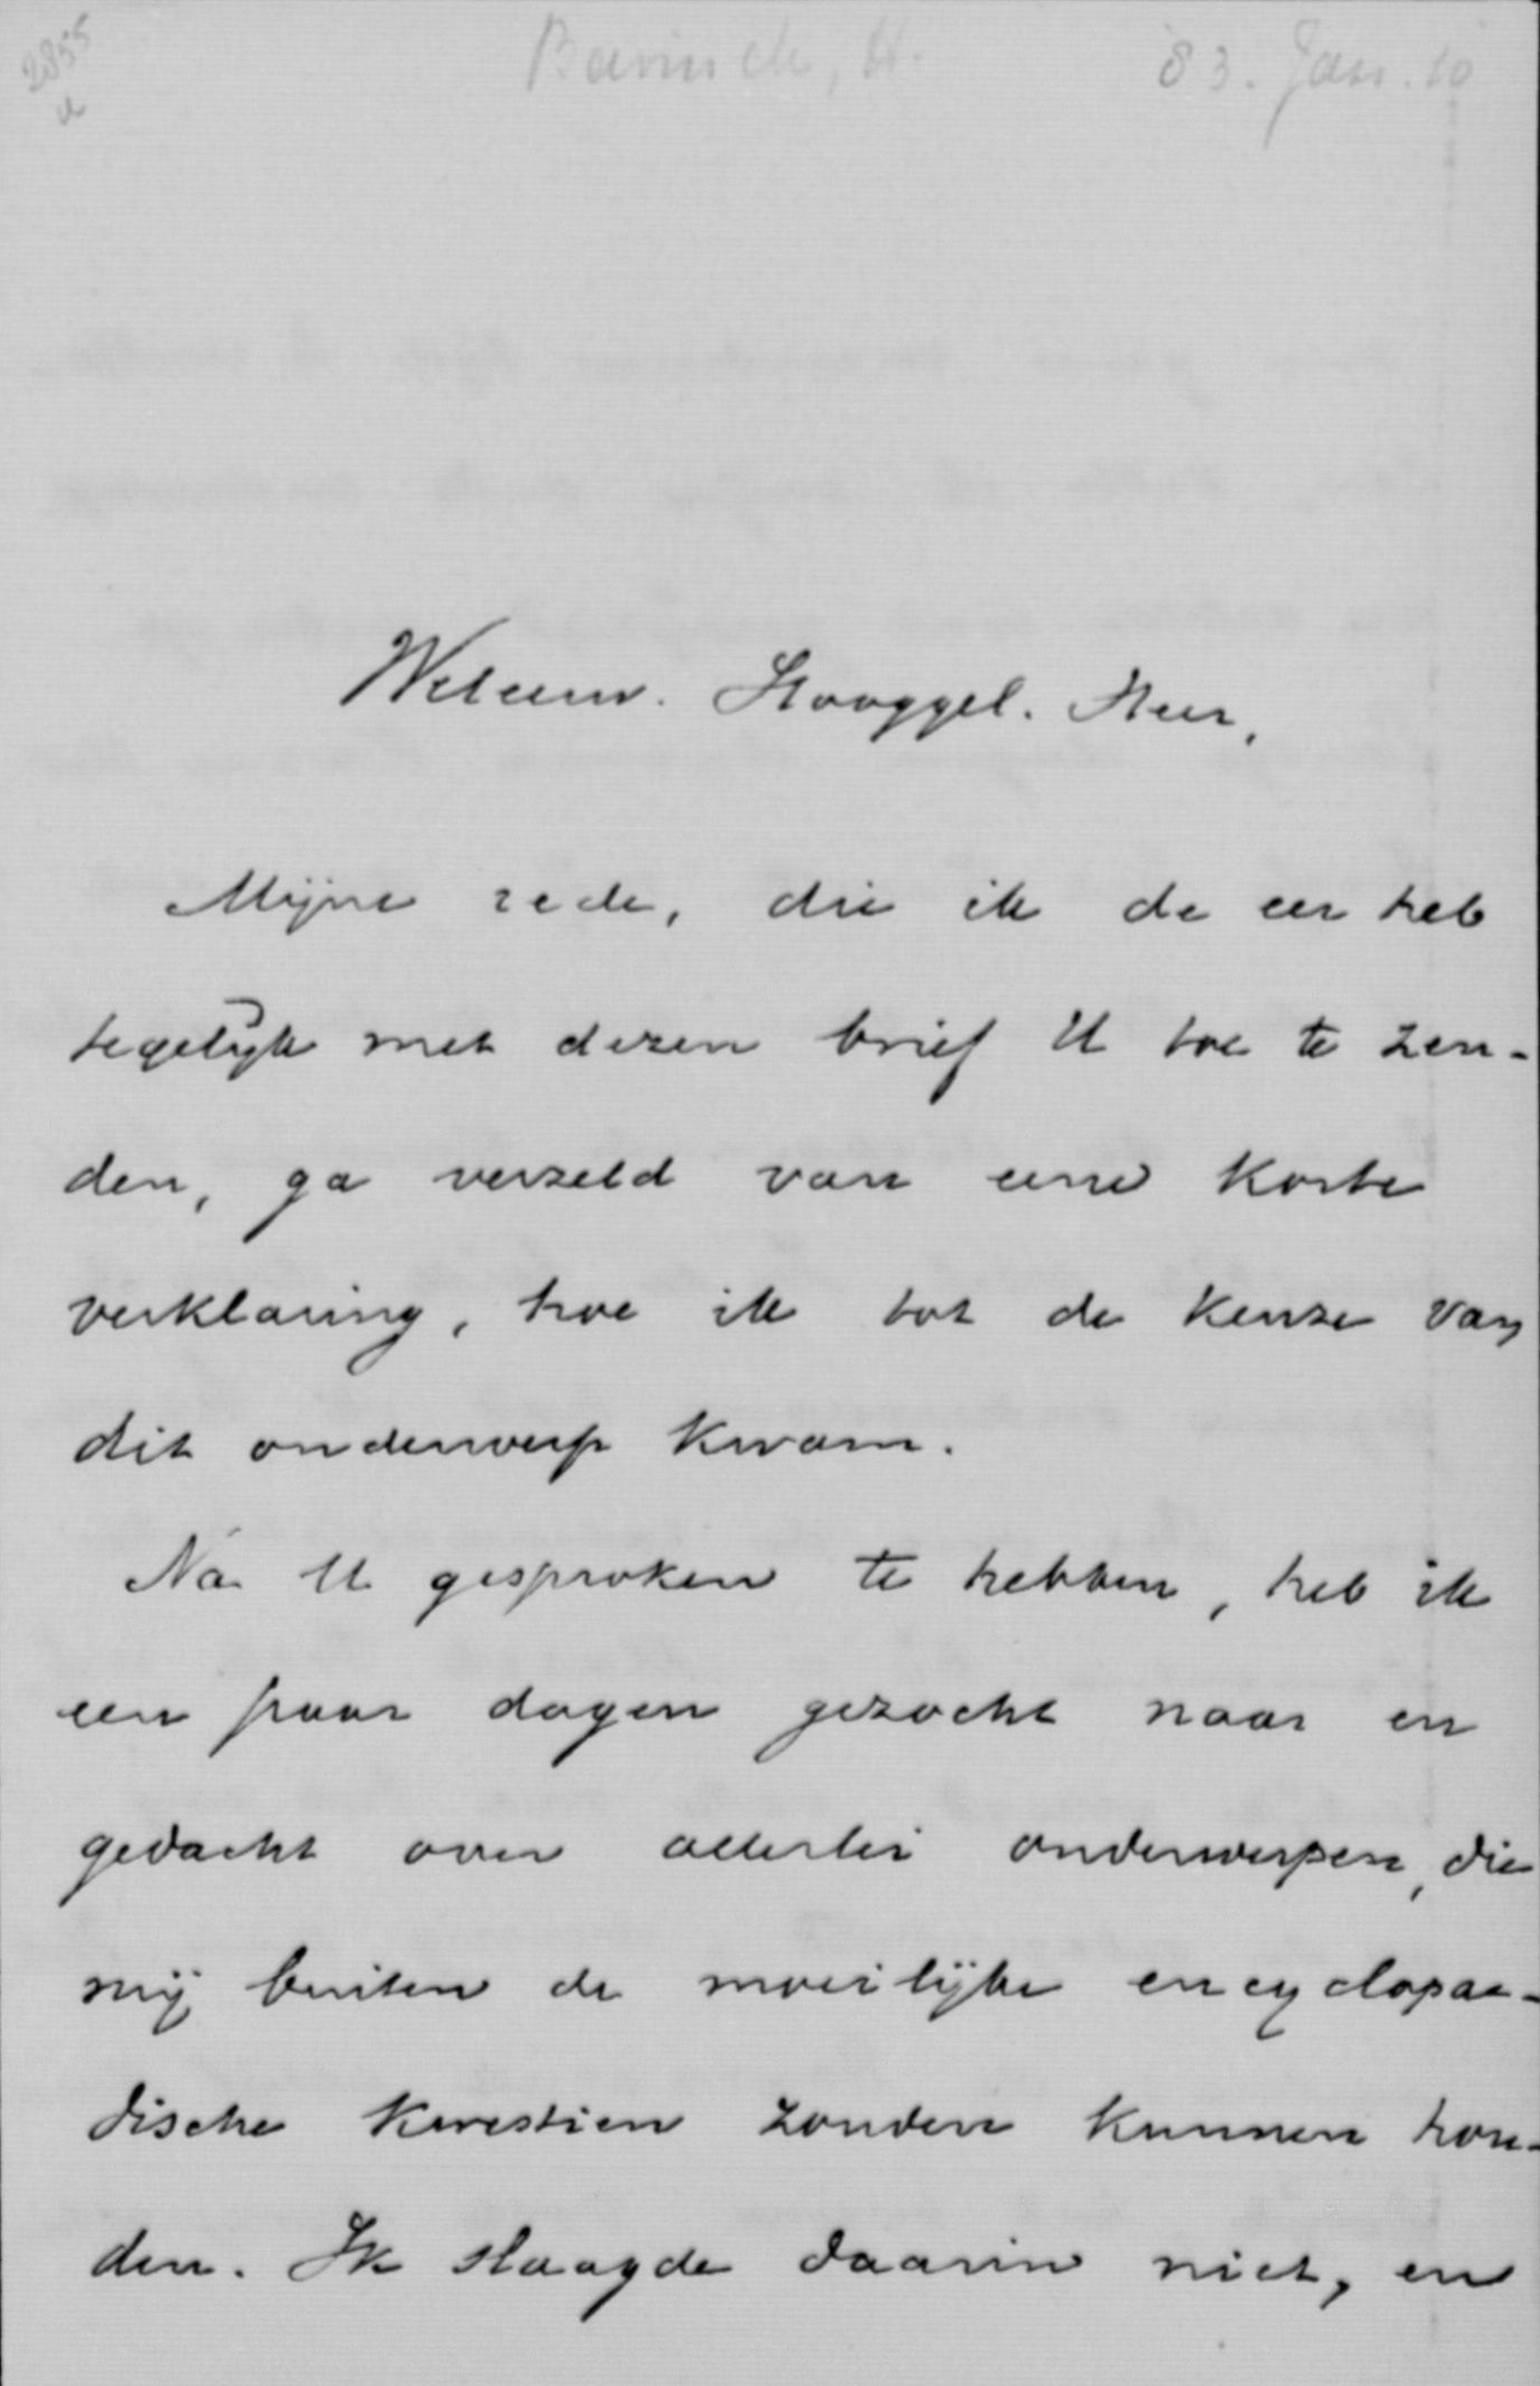 2855
Bavinck, H.
83. Jan. 10
Weleerw. Hooggel. Heer,
Mijne rede, die ik de eer heb
tegelijk met dezen brief U toe te zen-
den, ga verzeld van eene korte
verklaring, hoe ik tot de keuze van
dit onderwerp kwam.
Na U gesproken te hebben, heb ik
een paar dagen gezocht naar en
gedacht over allerlei onderwerpen, die
mij buiten de moeilijke encyclopae-
dische kwestien zouden kunnen hou-
den. Ik slaagde daarin niet, en